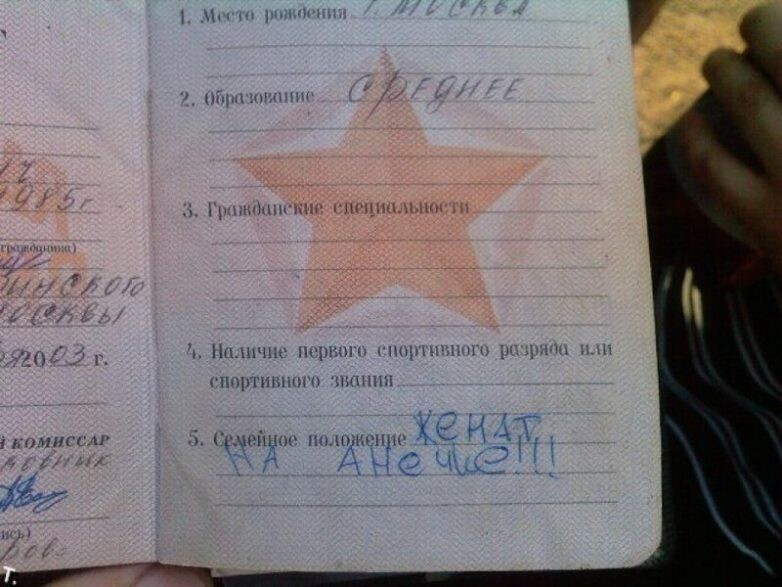 1985 г
гражданина)
инского
Москвы
2003 г.
Й КОМИССАР
ись)
т.
1. Место рождения г. Москва
2. Образование среднее
3. Гражданские специальности
4. Наличие первого спортивного разряда или
спортивного звания
5. Семейное положение ЖЕНАТ
НА АНЕЧКЕ!!!